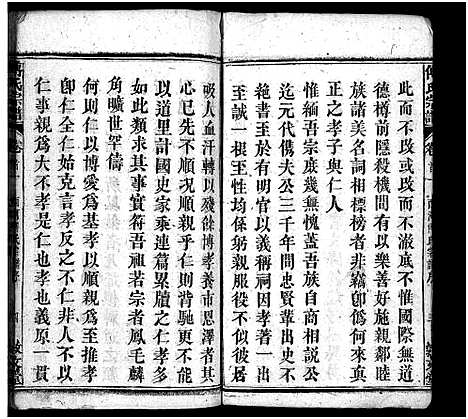 此而不改或改而不澈底不惟國際無道
德樽前隱殺機間有以樂善好施親鄰睦
族諸美名詞相標榜者非竊卽僞何來眞
正之孝子與仁人
惟緬吾宗庶幾無愧蓋吾族自商相說公
迄元代儁夫公三千年間忠賢輩出史不
絶書至於有明以義祭祠因孝晋爵者仁
至誠一根至性均係躬親服役不個彼居
吸人血汗轉以殘餘博孝養市恩澤者其
心已先不順况順而仁則背道而馳更難
以道里計國史家乘連篇累牘之仁孝大
如此類求其事實符吾祖若宗者鳳毛麟
角曠世罕儔
何則仁以博愛爲基孝以順慈爲終推孝
卽仁全仁始克言孝反之不仁非孝非孝
不仁事親爲大不孝是仁也孝也義原一貫